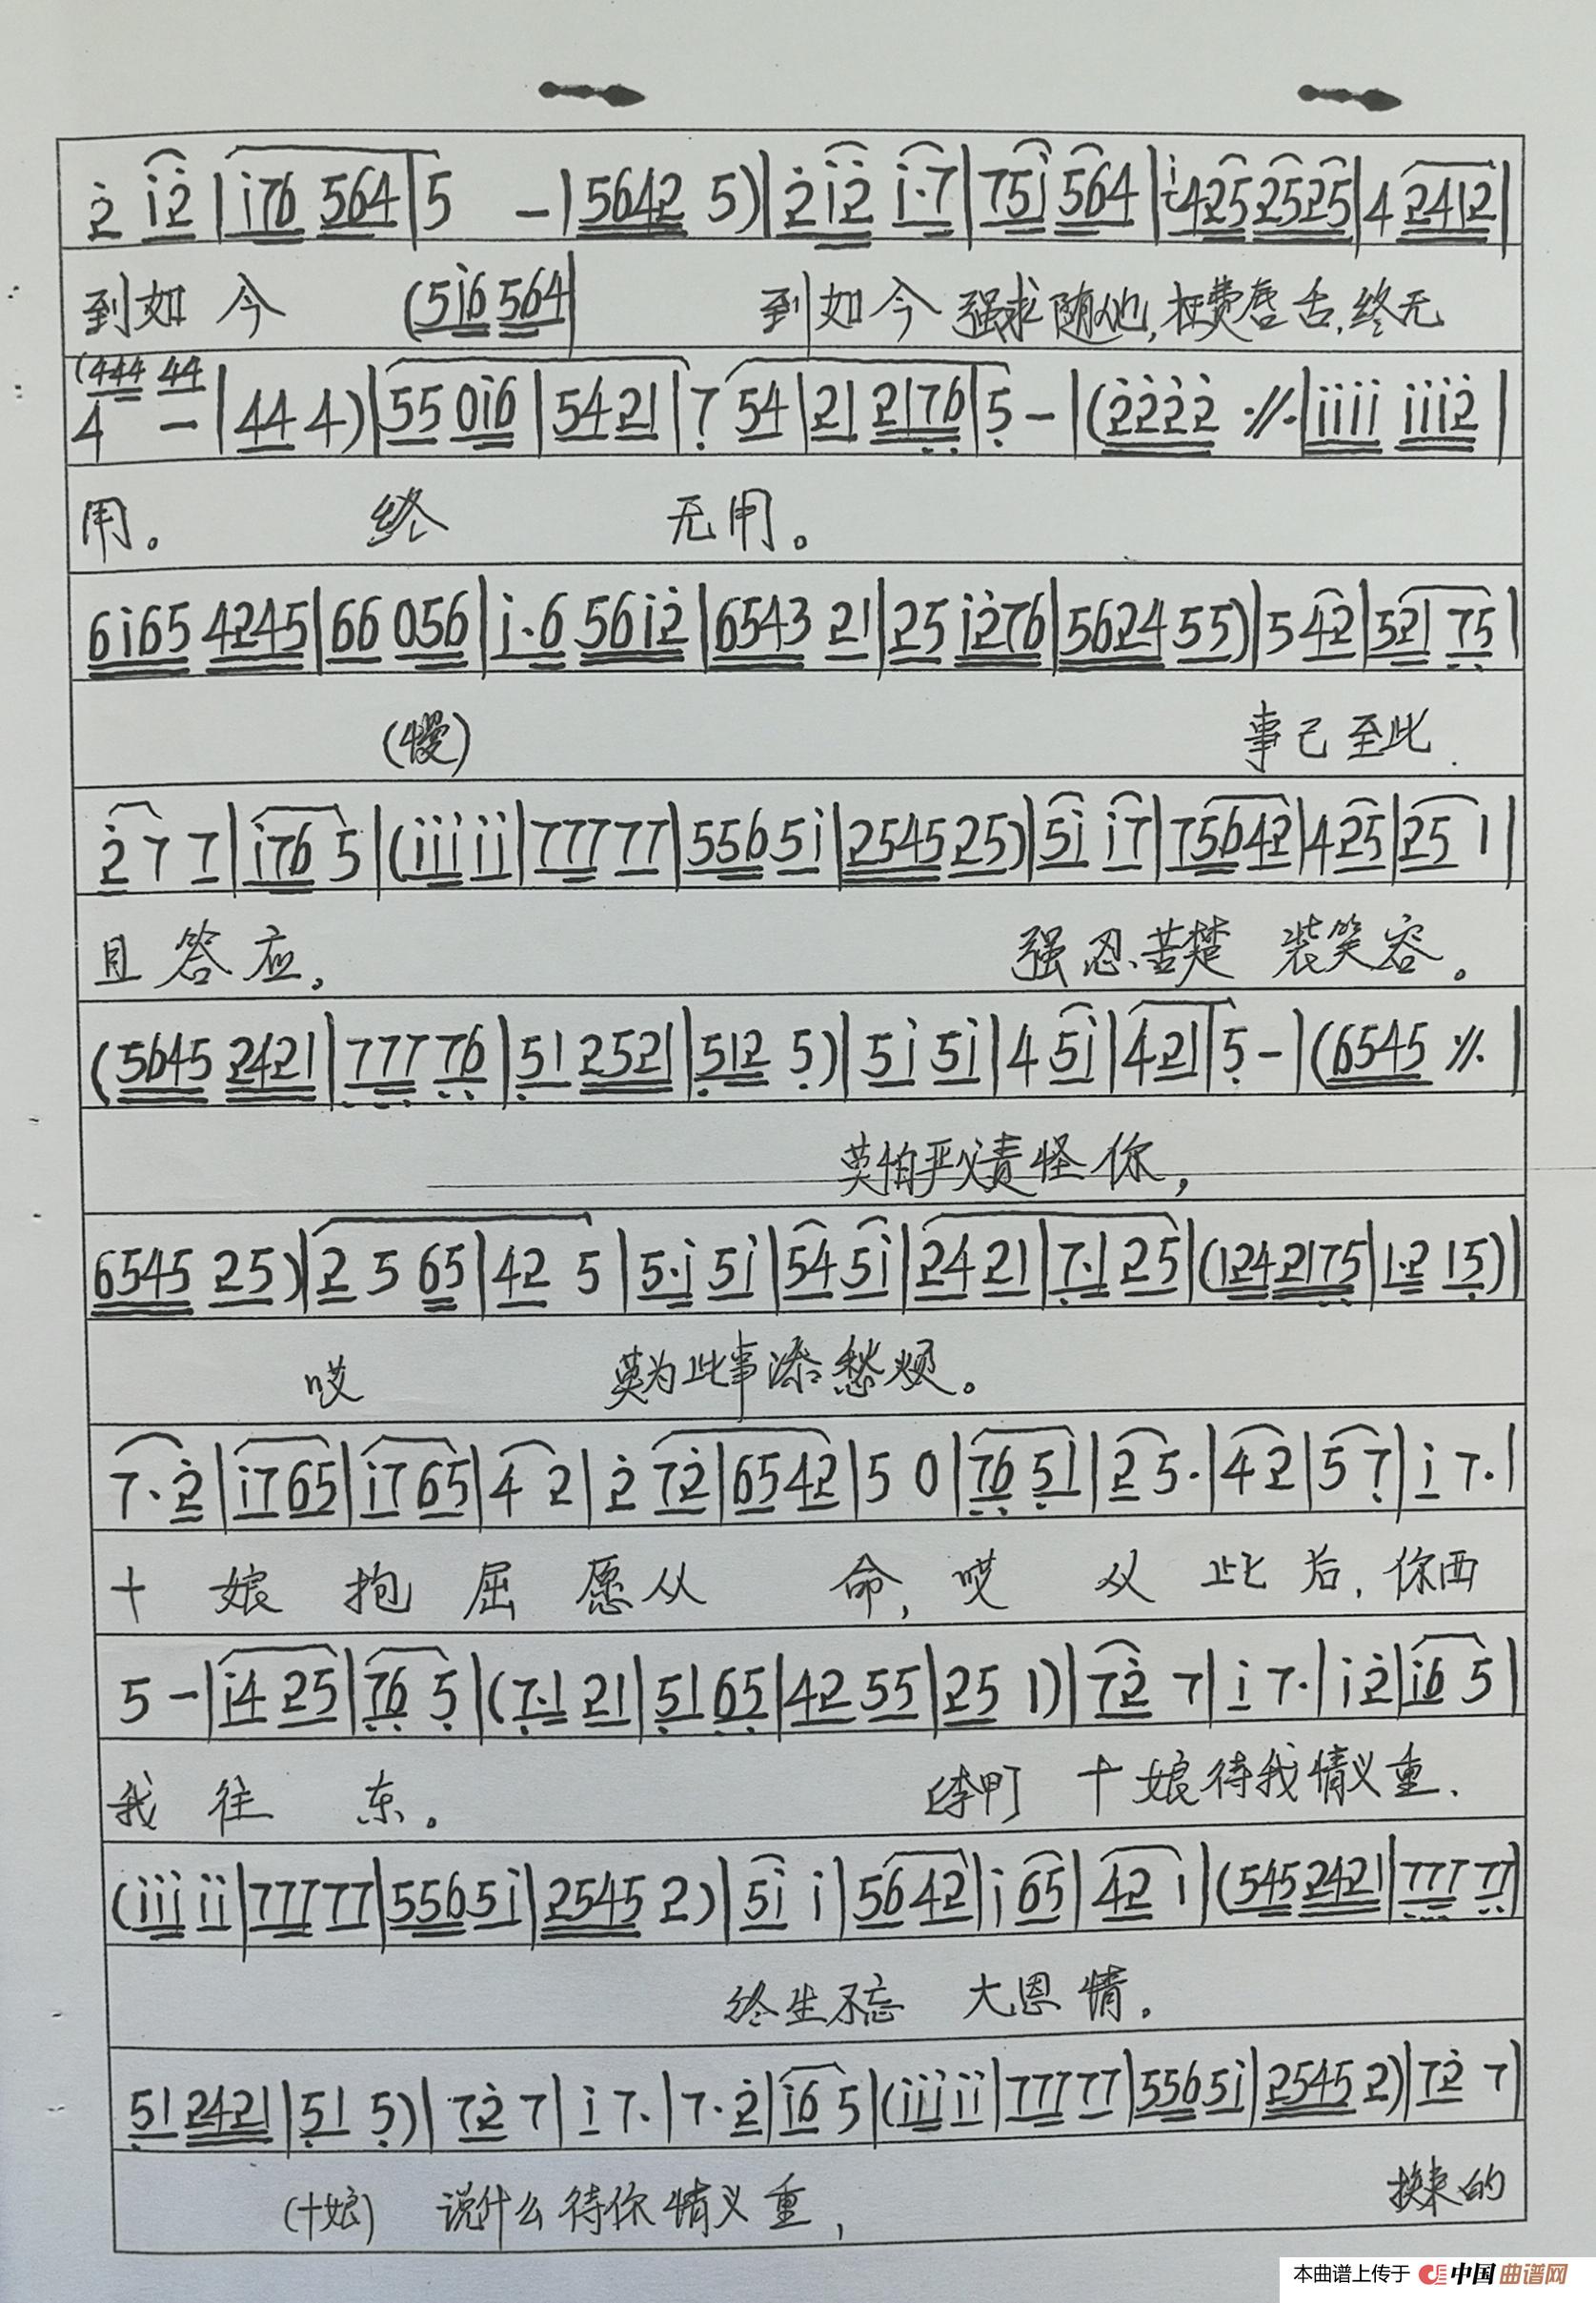 2̇ i̇2̇ | i̇76 564 | 5 － | 5642 5) | 2̇ i̇2̇ i̇·7 | 75i̇ 564 | 425 2525 | 4 2412 |
到如今 (5i̇6 564| 到如今 强求随他,枉费唇舌,终无
(444 44
4 － | 44 4) | 55 0i̇6 | 5421 | 7̣ 54 | 21 217̣6̣ | 5̣ － | (2̇2̇2̇2̇ ·//· | i̇i̇i̇i̇ i̇i̇i̇2̇ |
用。 终 无用。
6i̇65 4245 | 66 056 | i̇·6 56i̇2̇ | 6543 21 | 25 i̇2̇76 | 5624 55) | 5 42 | 521 7̣5̣ |
(慢) 事已至此.
2̇ 7 7 | i̇76 5 | (i̇i̇i̇ i̇i̇ | 777 77 | 556 5i̇ | 2545 25) | 5i̇ i̇7 | 75642 | 425 | 25 1 |
且答应, 强忍苦楚 装笑容。
(5645 2421 | 7̣7̣7̣ 7̣6̣ | 5̣1 2521 | 5̣12 5̣) | 5i̇ 5i̇ | 4 5i̇ | 421 | 5̣ － | (6545 ·//· |
莫怕严父责怪你,
6545 25) | 2 5 65 | 42 5 | 5·i̇ 5i̇ | 54 5i̇ | 24 21 | 7̣·1 25 | (124 217̣5̣ | 1·2 15̣) |
哎 莫为此事添愁烦。
7·2̇ | i̇765 | i̇765 | 4 2 | 2̇ 72̇ | 6542 | 5 0 | 7̣6̣ 5̣1 | 2 5· | 4 2 | 5 7̣ | i̇ 7· |
十娘抱屈愿从 命,哎 从此后,你西
5 － | i̇4 25 | 7̣6̣ 5̣ | (7̣·1 21 | 5̣1 6̣5̣ | 42 55 | 25 1) | 72̇ 7 | i̇ 7· | i̇ 2̇ | i̇6 5 |
我往 东。 (李甲) 十娘待我情义重.
(i̇i̇i̇ i̇i̇ | 777 77 | 556 5i̇ | 2545 2) | 5i̇ i̇ | 56 42 | i̇ 65 | 42 1 | (545 2421 | 7̣7̣7̣ 7̣7̣ |
终生不忘 大恩情.
5̣1 2421 | 5̣1 5̣) | 72̇ 7 | i̇ 7· | 7·2̇ | i̇6 5 | (i̇i̇i̇ i̇i̇ | 777 77 | 556 5i̇ | 2545 2) | 72̇ 7 |
(十娘) 说什么待你情义重, 换来的
本曲谱上传于 中国曲谱网